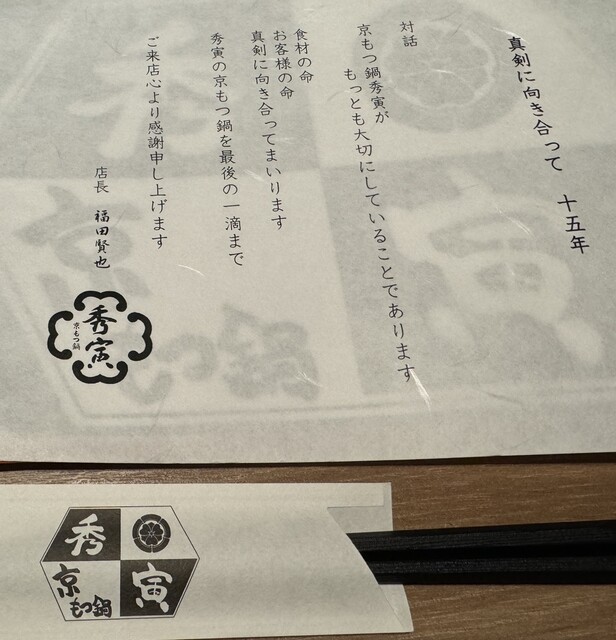 真剣に向き合って　十五年
対話
京もつ鍋秀寅が
もっとも大切にしていることであります
食材の命
お客様の命
真剣に向き合ってまいります
秀寅の京もつ鍋を最後の一滴まで
ご来店心より感謝申し上げます
店長　福田賢也
秀寅
京もつ鍋
秀
寅
京
もつ鍋